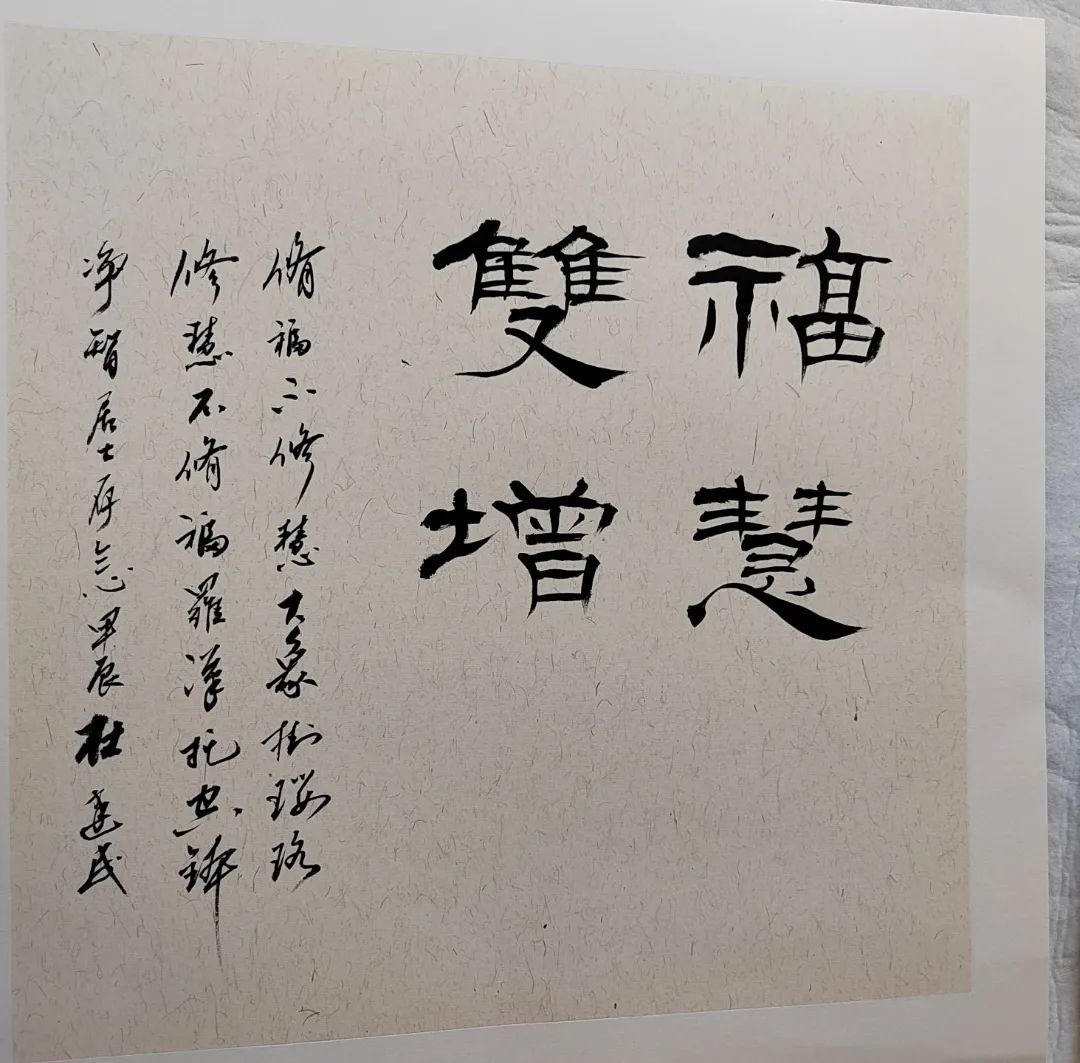 福慧
雙增
脩福不修慧大象掛瓔珞
修慧不脩福羅漢托空鉢
净智居士存念甲辰杜建民